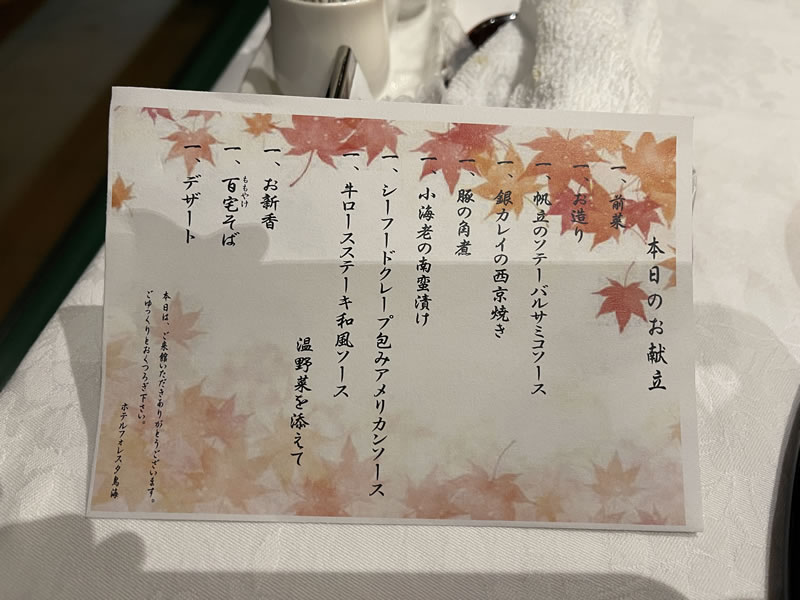 本日のお献立
一、前菜
一、お造り
一、帆立のソテーバルサミコソース
一、銀カレイの西京焼き
一、豚の角煮
一、小海老の南蛮漬け
一、シーフードクレープ包みアメリカンソース
一、牛ロースステーキ和風ソース
温野菜を添えて
一、お新香
一、百宅そば
ももやけ
一、デザート
本日は、ご来館いただきありがとうございます。
ごゆっくりとおくつろぎ下さい。
ホテルフォレスタ鳥海